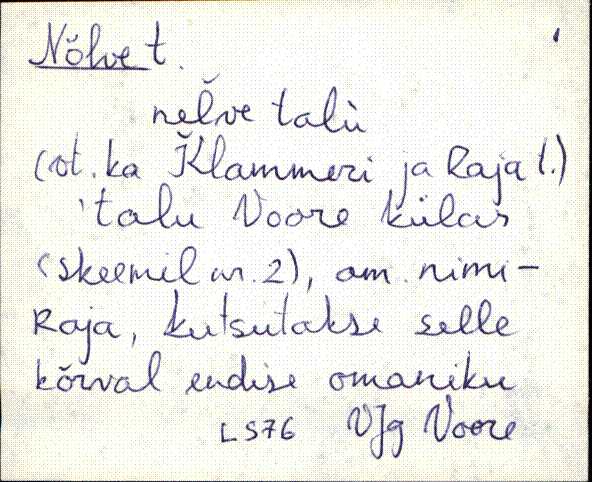 Nõlve t.
nel̆ve talù
(vt. ka Klammeri ja Raja t.)
'talu Voore külas
(skeemil nr. 2), am. nimi-
Raja, kutsutakse selle
kõrval endise omaniku
LS76 VJg Voore